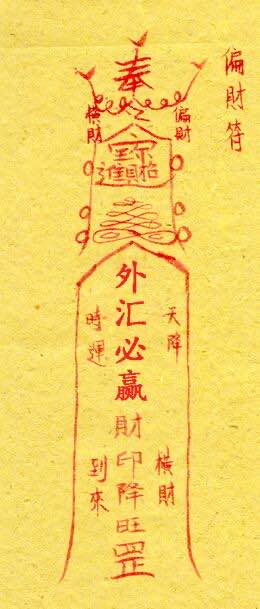 偏財符
奉
偏財
橫財
招財進寶
天降
橫財
外汇必赢
財印降旺罡
時運
到來